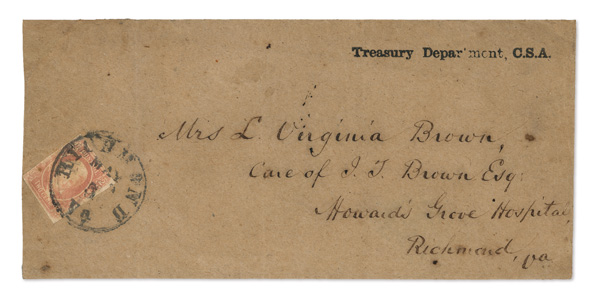 Treasury Department, C.S.A.
Mrs L. Virginia Brown,
Care of J. T. Brown Esq.
Howard's Grove Hospital,
Richmond, Va
RICHMOND
VA
MAY